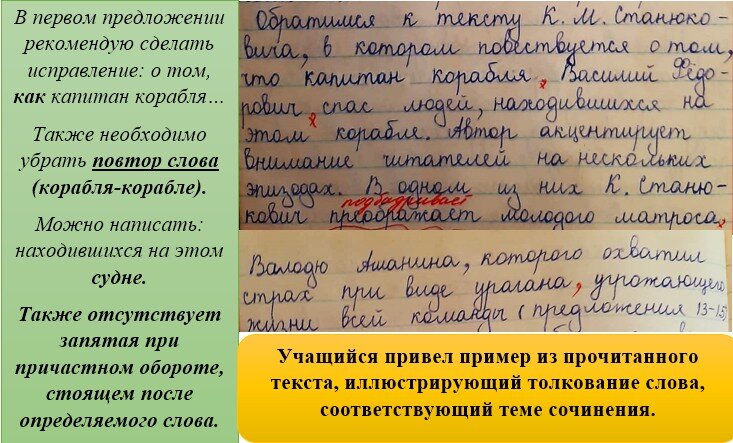 В первом предложении
рекомендую сделать
исправление: о том,
как капитан корабля…
Также необходимо
убрать повтор слова
(корабля-корабле).
Можно написать:
находившихся на этом
судне.
Также отсутствует
запятая при
причастном обороте,
стоящем после
определяемого слова.
Обратимся к тексту К. М. Станюко-
вича, в котором повествуется о том,
что капитан корабля Василий Фёдо-
рович спас людей, находившихся на
этом корабле. Автор акцентирует
внимание читателей на нескольких
эпизодах. В одном из них К. Станю-
подбадривает
кович преображает молодого матроса,
Володю Ашанина, которого охватил
страх при виде урагана, угрожающего
жизни всей команды (предложения 13-15)
Учащийся привел пример из прочитанного
текста, иллюстрирующий толкование слова,
соответствующий теме сочинения.